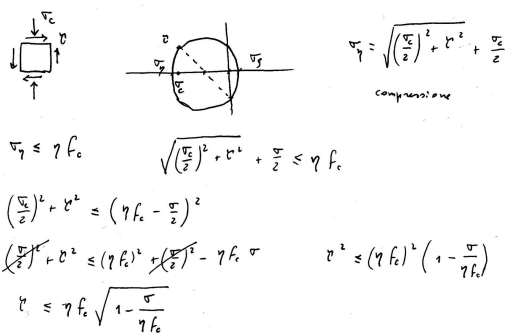 σ_c
τ
τ
σ_η
σ_c
σ_ξ
σ_η = √((σ_c/2)² + τ²) + σ_c/2
compressione
σ_η ≤ η f_c
√((σ_c/2)² + τ²) + σ/2 ≤ η f_c
(σ_c/2)² + τ² ≤ (η f_c - σ/2)²
(σ/2)² + τ² ≤ (η f_c)² + (σ/2)² - η f_c σ
τ² ≤ (η f_c)² (1 - σ/(η f_c))
τ ≤ η f_c √(1 - σ/(η f_c))